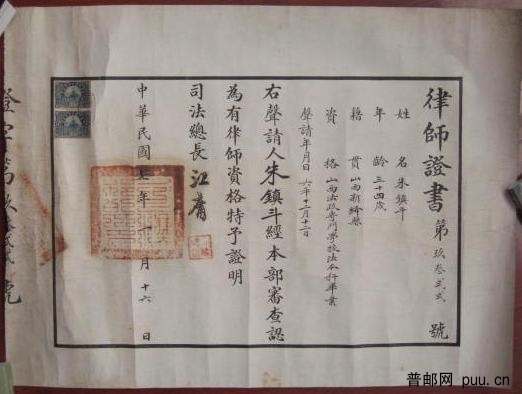 律師證書第玖叁貳貳號
姓名朱鎮斗
年齡三十四歲
籍貫山西新絳縣
資格山西法政專門學校法本科畢業
聲請年月日六年十二月十二日
右聲請人朱鎮斗經本部審查認
為有律師資格特予證明
司法總長江庸
中華民國七年一月十六日
普邮网 puu.cn